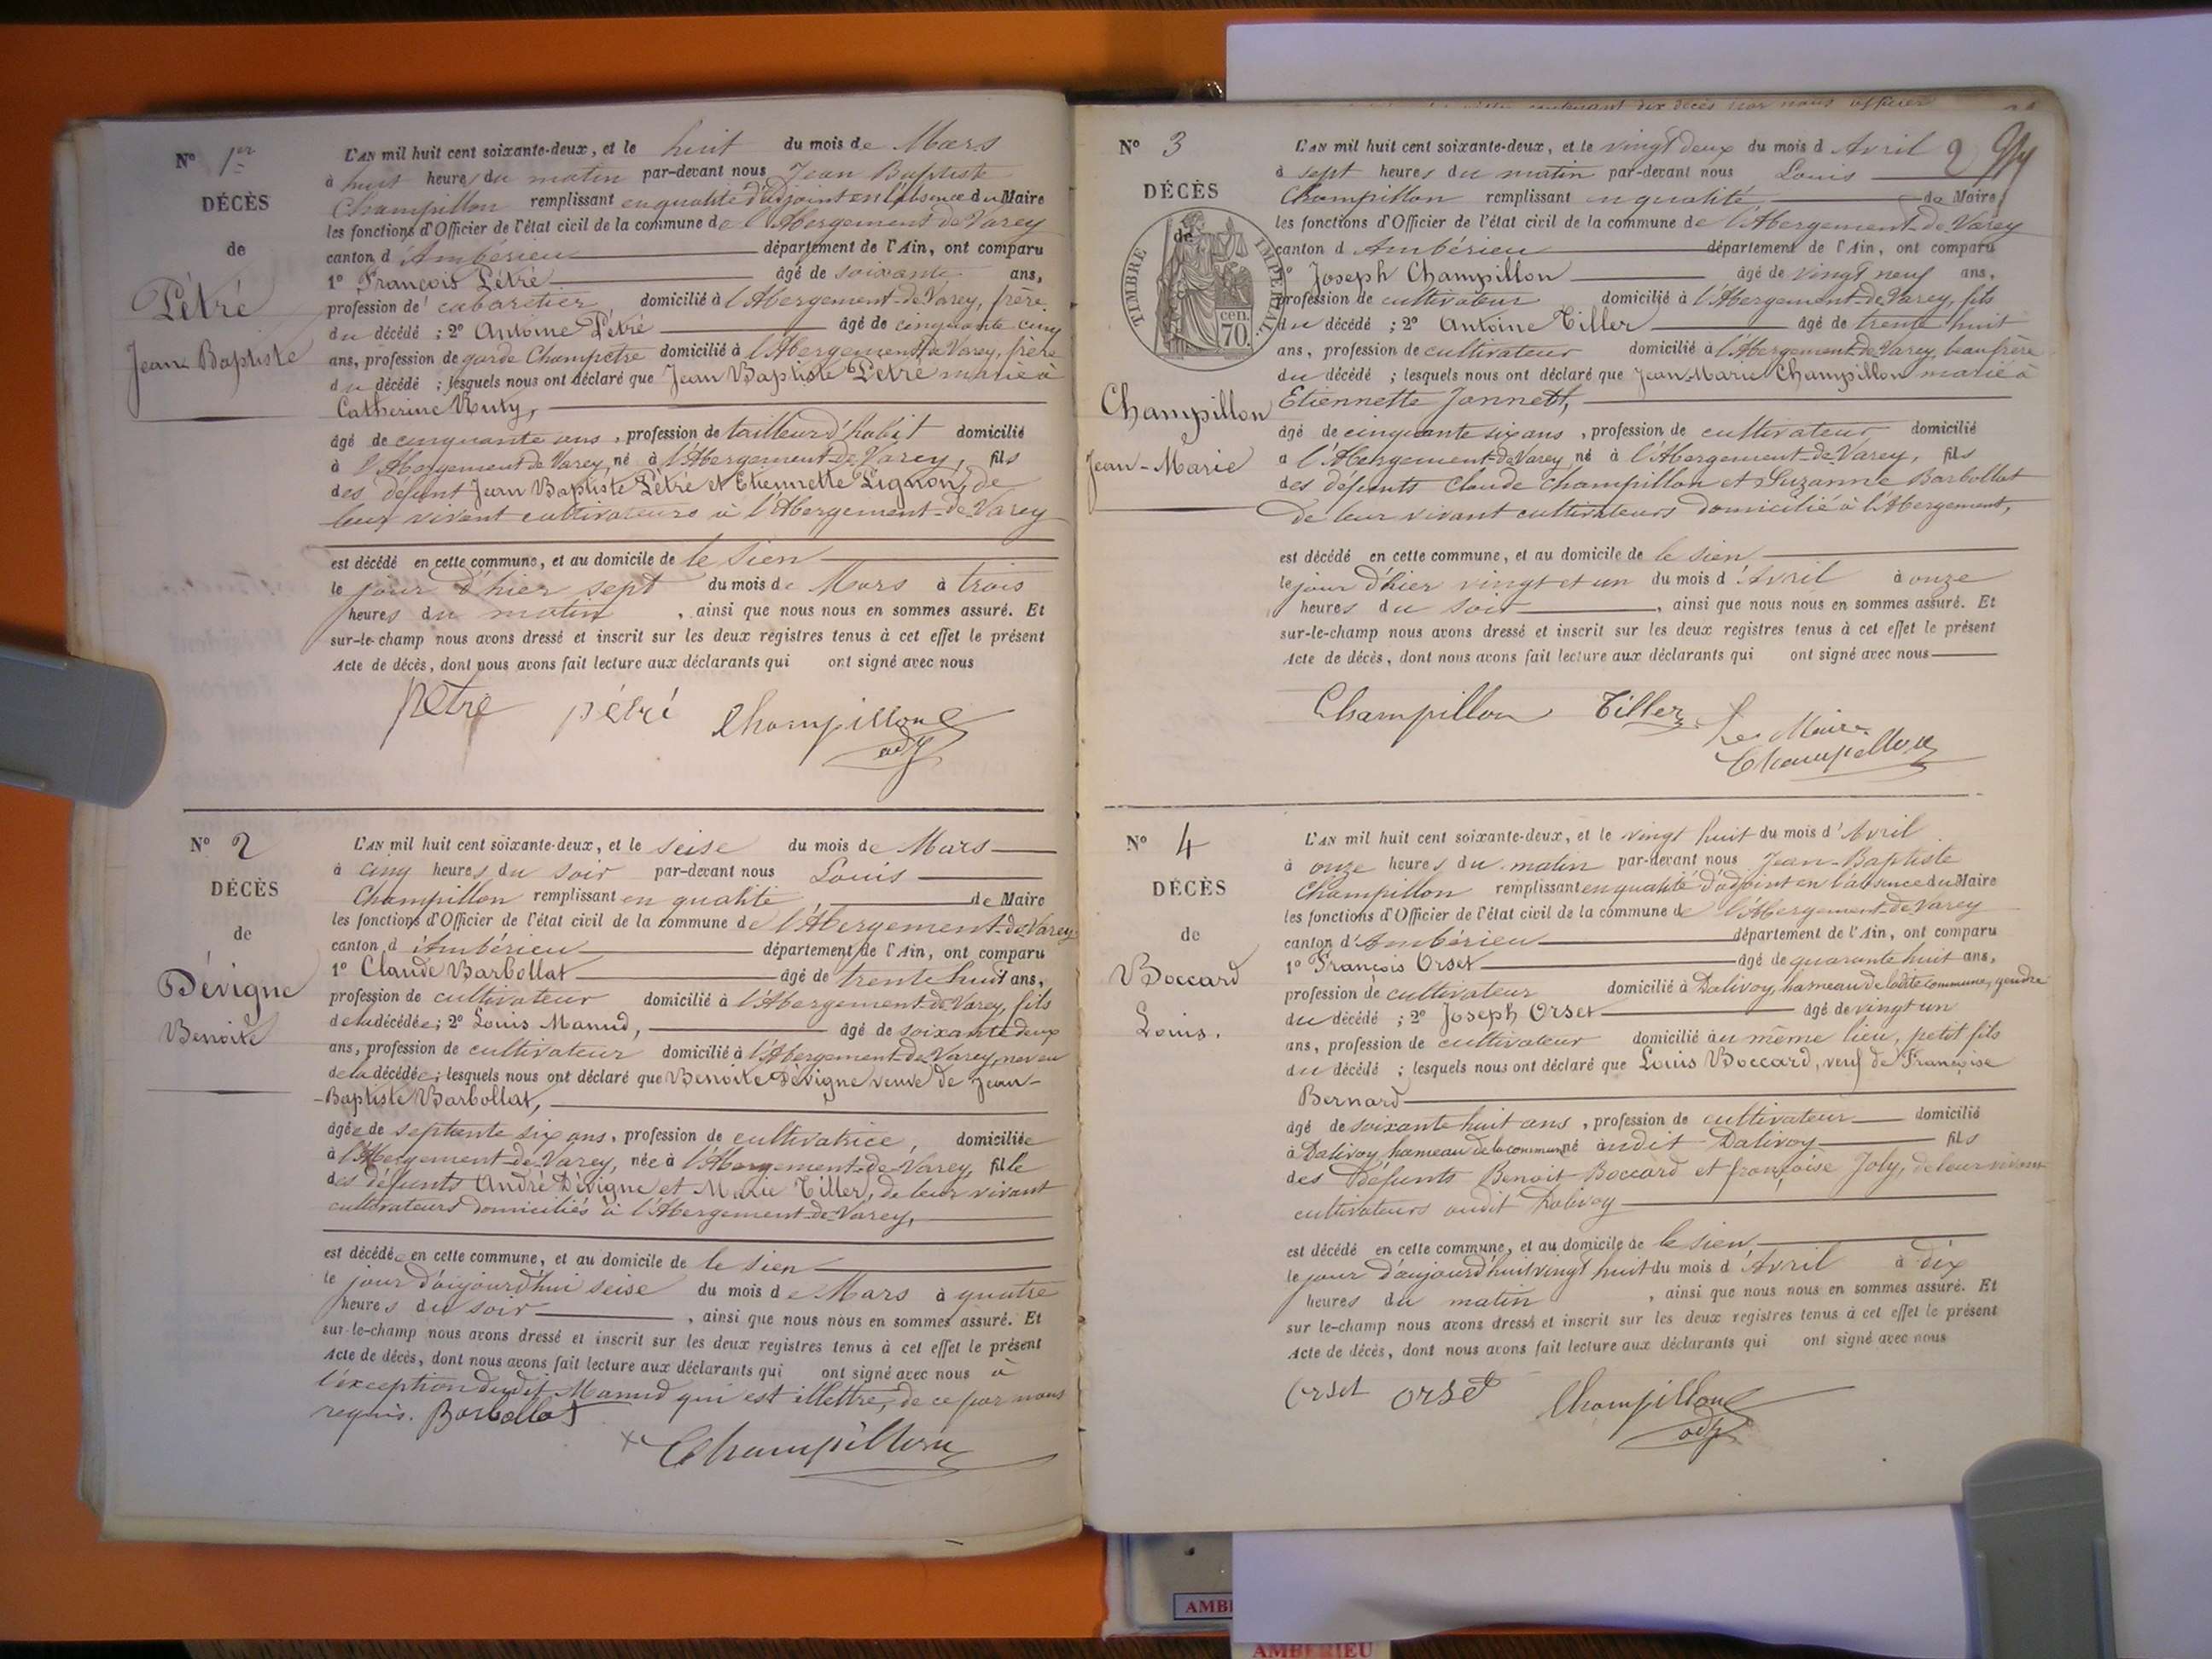 N° 1er
DÉCÈS
de
Pétré
Jean Baptiste
L'AN mil huit cent soixante-deux, et le huit du mois de Mars
à huit heures du matin par-devant nous Jean Baptiste
Champillon remplissant en qualité d'adjoint en l'absence du Maire
les fonctions d'Officier de l'état civil de la commune de l'Abergement de Varey
canton d'Ambérieu département de l'Ain, ont comparu
1° François Pétré âgé de soixante ans,
profession de cabaretier domicilié à l'Abergement-de-Varey, frère
du décédé ; 2° Antoine Pétré âgé de cinquante cinq
ans, profession de garde Champêtre domicilié à l'Abergement de Varey, frère
du décédé ; lesquels nous ont déclaré que Jean Baptiste Pétré marié à
Catherine
âgé de cinquante ans, profession de tailleur d'habit domicilié
à l'Abergement de Varey, né à l'Abergement de Varey, fils
des défunt Jean Baptiste Pétré et Etiennette Lignon, de
leur vivent cultivateurs à l'Abergement-de-Varey
est décédé en cette commune, et au domicile de le sien
le jour d'hier sept du mois de Mars à trois
heures du matin, ainsi que nous nous en sommes assuré. Et
sur-le-champ nous avons dressé et inscrit sur les deux registres tenus à cet effet le présent
Acte de décès, dont nous avons fait lecture aux déclarants qui ont signé avec nous
Petre pétré Champillon
adj
N° 2
DÉCÈS
de
Dévigne
Benoite
L'AN mil huit cent soixante-deux, et le seise du mois de Mars
à cinq heures du soir par-devant nous Louis
Champillon remplissant en qualité de Maire
les fonctions d'Officier de l'état civil de la commune de l'Abergement-de-Varey
canton d'Ambérieu département de l'Ain, ont comparu
1° Claude Barbollat âgé de trente huit ans,
profession de cultivateur domicilié à l'Abergement-de-Varey, fils
de la décédée; 2° Louis Manud, âgé de soixante deux
ans, profession de cultivateur domicilié à l'Abergement-de-Varey, neveu
de la décédée; lesquels nous ont déclaré que Benoite Dévigne veuve de Jean-
-Baptiste Barbollat,
âgée de septente six ans, profession de cultivatrice, domiciliée
à l'Abergement-de-Varey, née à l'Abergement-de-Varey, fille
des défunts André Dévigne et Marie Tiller, de leur vivant
cultivateurs domiciliés à l'Abergement-de-Varey,
est décédée en cette commune, et au domicile de le sien
le jour d'aujourd'hui seise du mois de Mars à quatre
heures du soir, ainsi que nous nous en sommes assuré. Et
sur-le-champ nous avons dressé et inscrit sur les deux registres tenus à cet effet le présent
Acte de décès, dont nous avons fait lecture aux déclarants qui ont signé avec nous à
l'exception dudit Manud qui est illettré, de ce par nous
requis. Barbollat
Champillon
contenant dix décès par nous officier
N° 3
DÉCÈS
de
TIMBRE IMPÉRIAL
cen.
70.
Champillon
Jean-Marie
L'AN mil huit cent soixante-deux, et le vingt deux du mois d'Avril 2
à sept heures du matin par-devant nous Louis
Champillon remplissant en qualité de Maire
les fonctions d'Officier de l'état civil de la commune de l'Abergement-de-Varey
canton d'Ambérieu département de l'Ain, ont comparu
1° Joseph Champillon âgé de vingt neuf ans,
profession de cultivateur domicilié à l'Abergement-de-Varey, fils
du décédé ; 2° Antoine Tiller âgé de trente huit
ans, profession de cultivateur domicilié à l'Abergement-de-Varey, beau frère
du décédé ; lesquels nous ont déclaré que Jean-Marie Champillon marié à
Etiennette Jannett,
âgé de cinquante six ans, profession de cultivateur domicilié
à l'Abergement-de-Varey né à l'Abergement-de-Varey, fils
des défunts Claude Champillon et Suzanne Barbollat
de leur vivant cultivateurs domicilié à l'Abergement,
est décédé en cette commune, et au domicile de le sien
le jour d'hier vingt et un du mois d'Avril à onze
heures du soir, ainsi que nous nous en sommes assuré. Et
sur-le-champ nous avons dressé et inscrit sur les deux registres tenus à cet effet le présent
Acte de décès, dont nous avons fait lecture aux déclarants qui ont signé avec nous
Champillon Tiller Le Maire
Champillon
N° 4
DÉCÈS
de
Boccard
Louis.
L'AN mil huit cent soixante-deux, et le vingt huit du mois d'Avril
à onze heures du matin par-devant nous Jean-Baptiste
Champillon remplissant en qualité d'adjoint en l'absence du Maire
les fonctions d'Officier de l'état civil de la commune de l'Abergement-de-Varey
canton d'Ambérieu département de l'Ain, ont comparu
1° François Orset âgé de quarante huit ans,
profession de cultivateur domicilié à Dalivoy, hameau de ladite commune, gendre
du décédé ; 2° Joseph Orset âgé de vingt un
ans, profession de cultivateur domicilié au même lieu, petit fils
du décédé ; lesquels nous ont déclaré que Louis Boccard, veuf de Françoise
Bernard
âgé de soixante huit ans, profession de cultivateur domicilié
à Dalivoy hameau de la commune né audit Dalivoy fils
des défunts Benoit Boccard et françoise Joly, de leur vivant
cultivateurs audit Dalivoy
est décédé en cette commune, et au domicile de le sien
le jour d'aujourd'hui vingt huit du mois d'Avril à dix
heures du matin, ainsi que nous nous en sommes assuré. Et
sur le-champ nous avons dressé et inscrit sur les deux registres tenus à cet effet le présent
Acte de décès, dont nous avons fait lecture aux déclarants qui ont signé avec nous
Orset orset Champillon
adj
AMBE
AMBERIEU